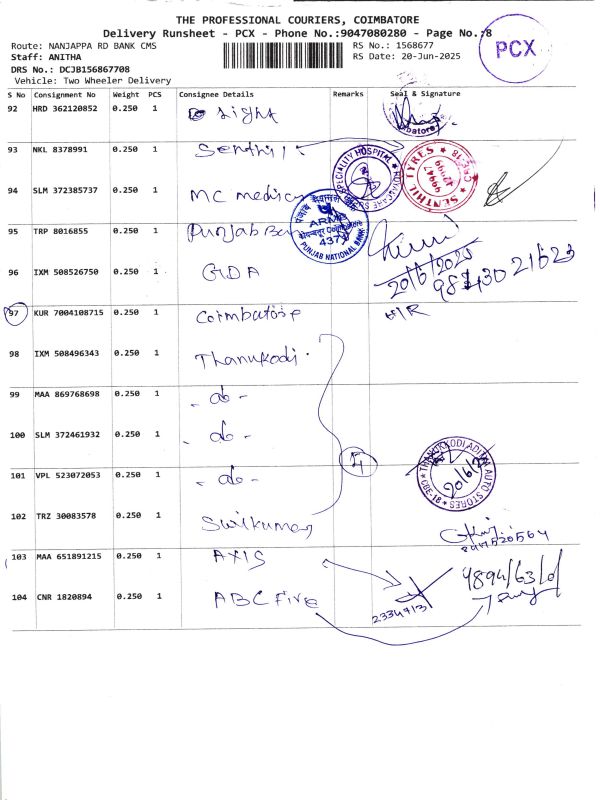 THE PROFESSIONAL COURIERS, COIMBATORE
Delivery Runsheet - PCX - Phone No.:9047080280 - Page No.:8
Route: NANJAPPA RD BANK CMS
RS No.: 1568677
PCX
Staff: ANITHA
RS Date: 20-Jun-2025
DRS No.: DCJB156867708
Vehicle: Two Wheeler Delivery
S No Consignment No Weight PCS Consignee Details Remarks Seal & Signature
92 HRD 362120852 0.250 1 Sight
93 NKL 8378991 0.250 1 Senthil
SPECIALITY HOSPITAL
SENTHIL TYRES
CBE-18
94 SLM 372385737 0.250 1 MC medica
95 TRP 8016855 0.250 1 Punjab Ban
ARMB
4371
PUNJAB NATIONAL BANK
96 IXM 508526750 0.250 1 GDA
20/6/2025
97 KUR 7004108715 0.250 1 Coimbatore
98 IXM 508496343 0.250 1 Thanukodi
99 MAA 869768698 0.250 1 - do -
100 SLM 372461932 0.250 1 - do -
THANUKKODI ADITYA AUTO STORES
CBE-18
101 VPL 523072053 0.250 1 - do -
102 TRZ 30083578 0.250 1 Swilkumar
103 MAA 651891215 0.250 1 AXIS
104 CNR 1820894 0.250 1 ABC Fire